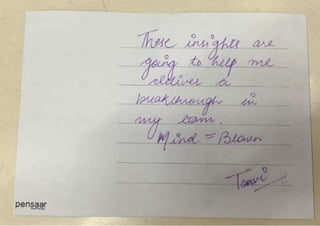 These insights are
going to help me
deliver a
breakthrough in
my team.
Mind = Blown
Tanvi
pensaar